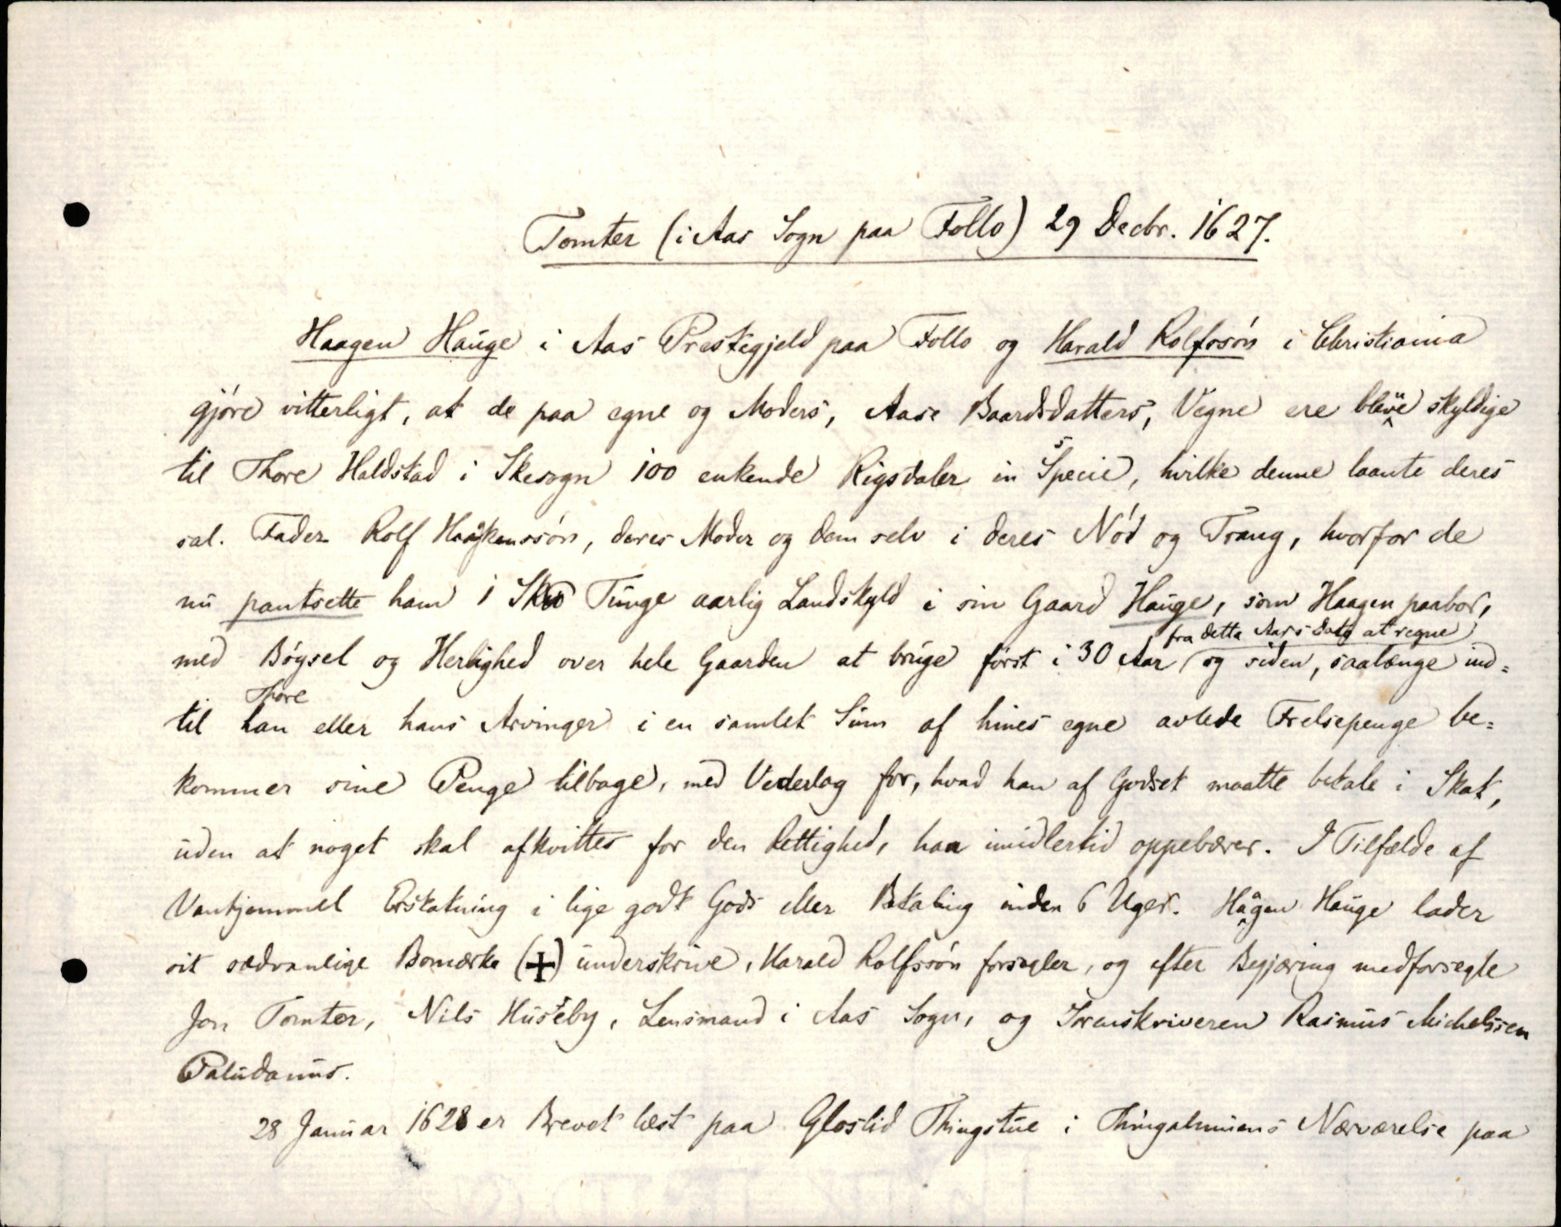 Tomter (i Aas Sogn paa Follo) 29 Decbr. 1627.
Haagen Hauge i Aas Prestegjeld paa Follo og Harald Rolfssön i Christiania
gjöre vitterligt, at de paa egne og Moders, Aase Baardsdatters, Vegne ere blevne skyldige
til Thore Haldstad i Skesogn 100 enkende Rigsdaler in Specie, hvilke denne laante deres
sal. Fader Rolf Haakenssön, deres Moder og dem selv i deres Nöd og Trang, hvorfor de
nu pantsette ham 1 Skd Tunge aarlig Landskyld i sin Gaard Hauge, som Haagen paabor,
fra dette Aars Datg at regne
med Bögsel og Herlighed over hele Gaarden at bruge först i 30 Aar og siden, saalænge ind=
Thore
til han eller hans Arvinger i en samlet Sum af hines egne avlede Frelsepenge be=
kommer sine Penge tilbage, med Vederlag for, hvad han af Godset maatte betale i Skat,
uden at noget skal afkvittes for den Rettighed, han imidlertid oppebærer. I Tilfælde af
Vanhjemmel Erstatning i lige godt Gods eller Betaling inden 6 Uger. Hågen Hauge lader
sit sædvanlige Bomærke (+) underskrive, Harald Rolfssön forsegler, og efter Begjæring medforsegle
Jon Tomter, Nils Huseby, Lensmand i Aas Sogn, og Sorenskriveren Rasmus Michelssen
Paludanus.
28 Januar 1628 er Brevet læst paa Glostid Thingstue i Thingalmuens Nærværelse paa